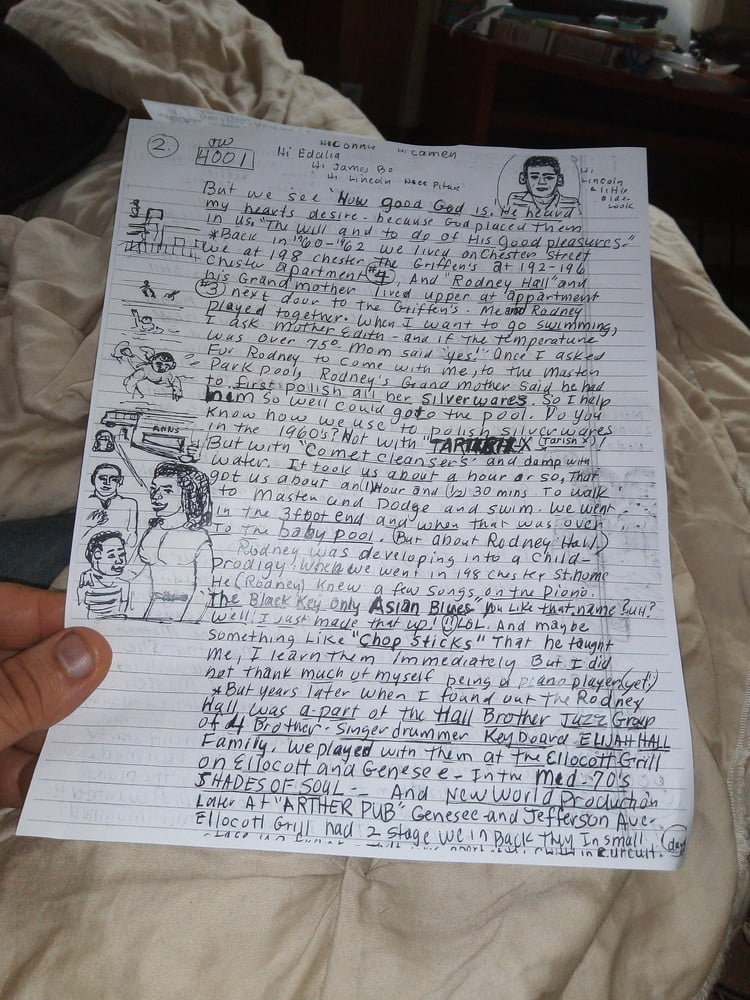 2.
JW
4001
Hi Connie Hi Camen
Hi Edalia
Hi James Bo
Hi Lincoln Nece Pitare
Hi
Lincoln
his
older
Look
But we see "How good God is, He heard
my hearts desire - because God placed them
in us, "The will and to do of His Good pleasures."
*Back in 1960-1962 we lived on Chester Street
we at 198 chester The Griffen's at 192-196
Chester apartment #4, And "Rodney Hall" and
his Grandmother lived upper at appartment
#3 next door to the Griffen's. Me and Rodney
played together. When I want to go swimming,
I ask mother Edith - and if the temperature
was over 75° Mom said "yes!" Once I asked
For Rodney to come with me, to the Masten
Park pool, Rodney's Grand mother said he had
to first polish all her Silverwares. So I help
him so well could go to the pool. Do you
Know how we use to polish silverwares
in the 1960's? Not with "TARNISHX (Tarish X)!
But with "Comet cleansers" and damp with
water. It took us about a hour or so, That
got us about an 1 Hour and (1/2) 30 mins. To walk
to Masten und Dodge and swim. We went
in the 3 foot end and when that was over
To the baby pool. (But about Rodney Hall)
Rodney was developing into a Child-
Prodigy. When we went in 198 Chester St. home
He (Rodney) Knew a few Songs, on the Piono.
The Black Key Only Asian Blues you Like that name? UH?
Well, I just made that up! LOL. And maybe
something Like "Chop Sticks" That he taught
me, I learn them immediately But I did
not thank much of myself being a piano player (yet)
*But years later when I found out the Rodney
Hall was a-part of the Hall Brother Jazz Group
of 4 Brother - Singer drummer KeyBoard ELIJAH HALL
Family, we played with them at the Ellocott Grill
on Ellocott and Genesee - In the Med-70's
SHADES OF SOUL -- And New World Production
Later At "ARTHER PUB" Genesee and Jefferson Ave.
Ellocott Grill had 2 stage we in Back They In small (day
Circuit.
ANNS